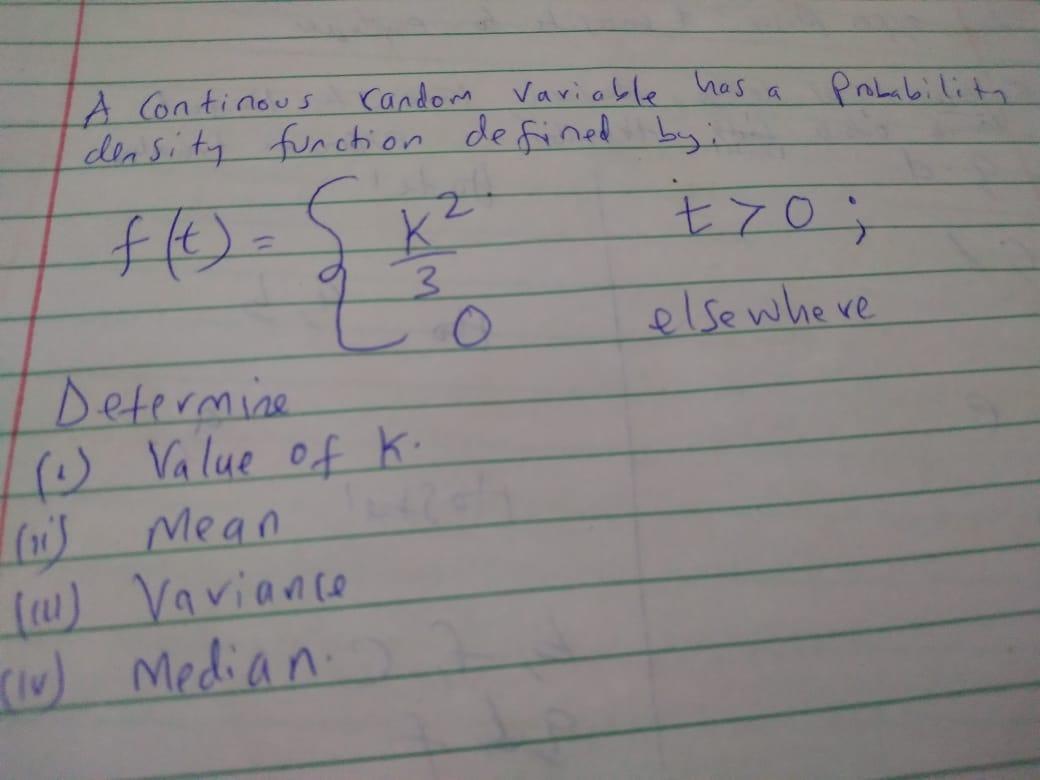 A Continous random variable has a Probability
density function defined by:
f(t) = { K²/3 t > 0 ;
0 elsewhere
Determine
(i) Value of K.
(ii) Mean
(iii) Variance
(iv) Median.